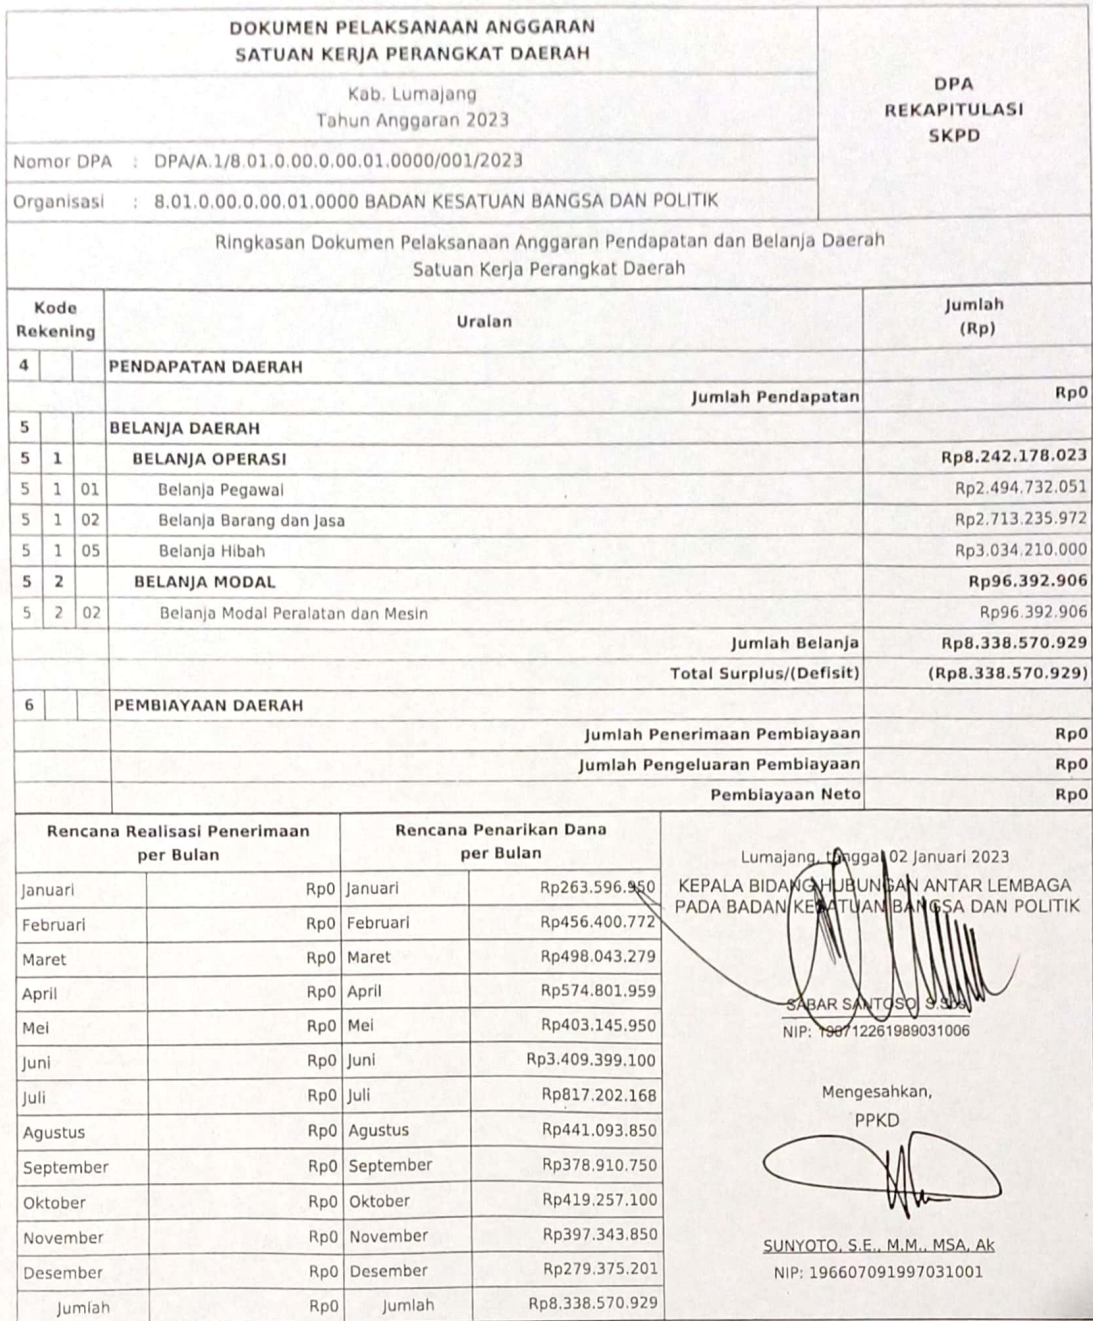 DOKUMEN PELAKSANAAN ANGGARAN
SATUAN KERJA PERANGKAT DAERAH
DPA
REKAPITULASI
SKPD
Kab. Lumajang
Tahun Anggaran 2023
Nomor DPA : DPA/A.1/8.01.0.00.0.00.01.0000/001/2023
Organisasi : 8.01.0.00.0.00.01.0000 BADAN KESATUAN BANGSA DAN POLITIK
Ringkasan Dokumen Pelaksanaan Anggaran Pendapatan dan Belanja Daerah
Satuan Kerja Perangkat Daerah
Kode Rekening Uraian Jumlah (Rp)
4 PENDAPATAN DAERAH
Jumlah Pendapatan Rp0
5 BELANJA DAERAH
5 1 BELANJA OPERASI Rp8.242.178.023
5 1 01 Belanja Pegawai Rp2.494.732.051
5 1 02 Belanja Barang dan Jasa Rp2.713.235.972
5 1 05 Belanja Hibah Rp3.034.210.000
5 2 BELANJA MODAL Rp96.392.906
5 2 02 Belanja Modal Peralatan dan Mesin Rp96.392.906
Jumlah Belanja Rp8.338.570.929
Total Surplus/(Defisit) (Rp8.338.570.929)
6 PEMBIAYAAN DAERAH
Jumlah Penerimaan Pembiayaan Rp0
Jumlah Pengeluaran Pembiayaan Rp0
Pembiayaan Neto Rp0
Rencana Realisasi Penerimaan per Bulan Rencana Penarikan Dana per Bulan
Januari Rp0 Januari Rp263.596.950
Februari Rp0 Februari Rp456.400.772
Maret Rp0 Maret Rp498.043.279
April Rp0 April Rp574.801.959
Mei Rp0 Mei Rp403.145.950
Juni Rp0 Juni Rp3.409.399.100
Juli Rp0 Juli Rp817.202.168
Agustus Rp0 Agustus Rp441.093.850
September Rp0 September Rp378.910.750
Oktober Rp0 Oktober Rp419.257.100
November Rp0 November Rp397.343.850
Desember Rp0 Desember Rp279.375.201
Jumlah Rp0 Jumlah Rp8.338.570.929
Lumajang, tanggal 02 Januari 2023
KEPALA BIDANG HUBUNGAN ANTAR LEMBAGA
PADA BADAN KESATUAN BANGSA DAN POLITIK
SABAR SANTOSO
NIP: 196712261989031006
Mengesahkan,
PPKD
SUNYOTO, S.E., M.M., MSA, Ak
NIP: 196607091997031001